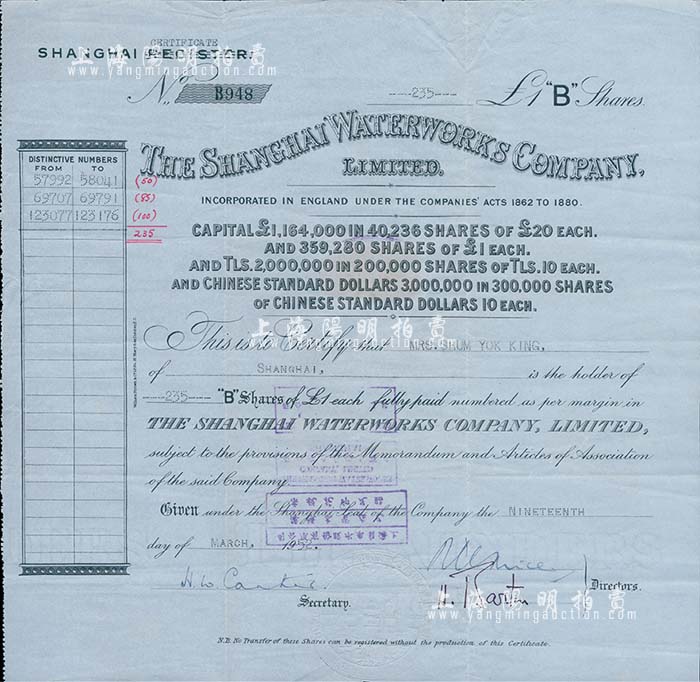 CERTIFICATE
SHANGHAI REGISTER.
No B948
---235--- £1 "B" Shares.
上海陽明拍賣
www.yangmingauction.com
THE SHANGHAI WATERWORKS COMPANY,
LIMITED.
INCORPORATED IN ENGLAND UNDER THE COMPANIES' ACTS 1862 TO 1880.
DISTINCTIVE NUMBERS
FROM TO
57992 58041 (50)
69707 69791 (85)
123077 123176 (100)
235
CAPITAL £1,164,000 IN 40,236 SHARES OF £20 EACH.
AND 359,280 SHARES OF £1 EACH.
AND TLS. 2,000,000 IN 200,000 SHARES OF TLS. 10 EACH.
AND CHINESE STANDARD DOLLARS 3,000,000 IN 300,000 SHARES
OF CHINESE STANDARD DOLLARS 10 EACH.
上海陽明拍賣
www.yangmingauction.com
This is to Certify that MRS. SEUM YOK KING,
of SHANGHAI, is the holder of
---235--- "B" Shares of £1 each fully paid numbered as per margin in
THE SHANGHAI WATERWORKS COMPANY, LIMITED,
subject to the provisions of the Memorandum and Articles of Association
of the said Company
Given under the Shanghai Seal of the Company the NINETEENTH
day of MARCH, 1952.
Directors.
Secretary.
上海陽明拍賣
www.yangmingauction.com
N.B. No Transfer of these Shares can be registered without the production of this Certificate.